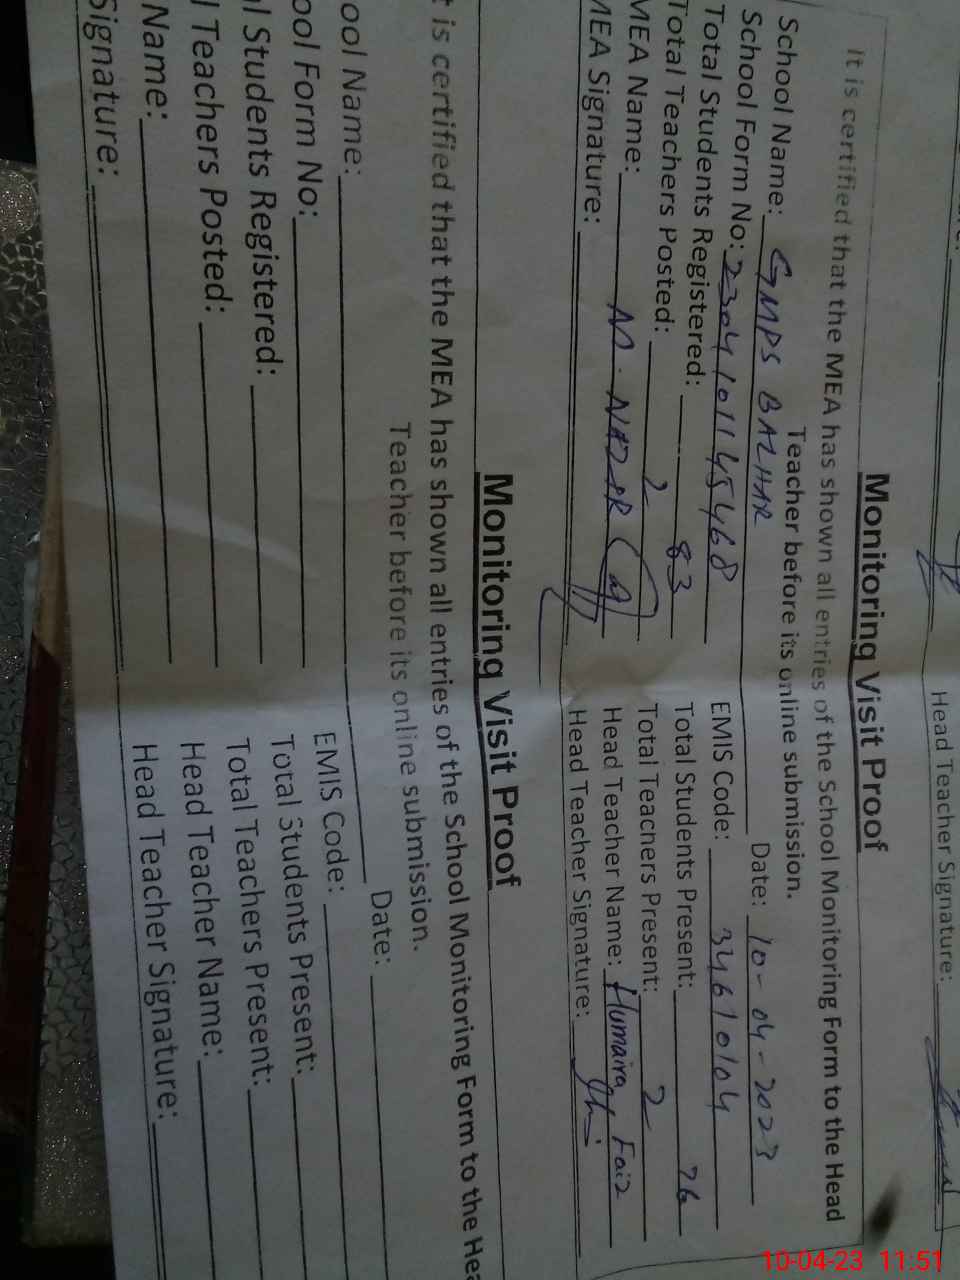 Head Teacher Signature:
Monitoring Visit Proof
It is certified that the MEA has shown all entries of the School Monitoring Form to the Head
Teacher before its online submission.
School Name: GMPS BAZHAR Date: 10-04-2023
School Form No: 2304101145468 EMIS Code: 34610104
Total Students Registered: 83 Total Students Present: 76
Total Teachers Posted: 2 Total Teachers Present: 2
MEA Name: M. NAZER Head Teacher Name: Humaira Faiz
MEA Signature: Head Teacher Signature:
Monitoring Visit Proof
t is certified that the MEA has shown all entries of the School Monitoring Form to the Hea
Teacher before its online submission.
ool Name: Date:
ool Form No: EMIS Code:
l Students Registered: Total Students Present:
l Teachers Posted: Total Teachers Present:
Name: Head Teacher Name:
Signature: Head Teacher Signature:
10-04-23 11:51